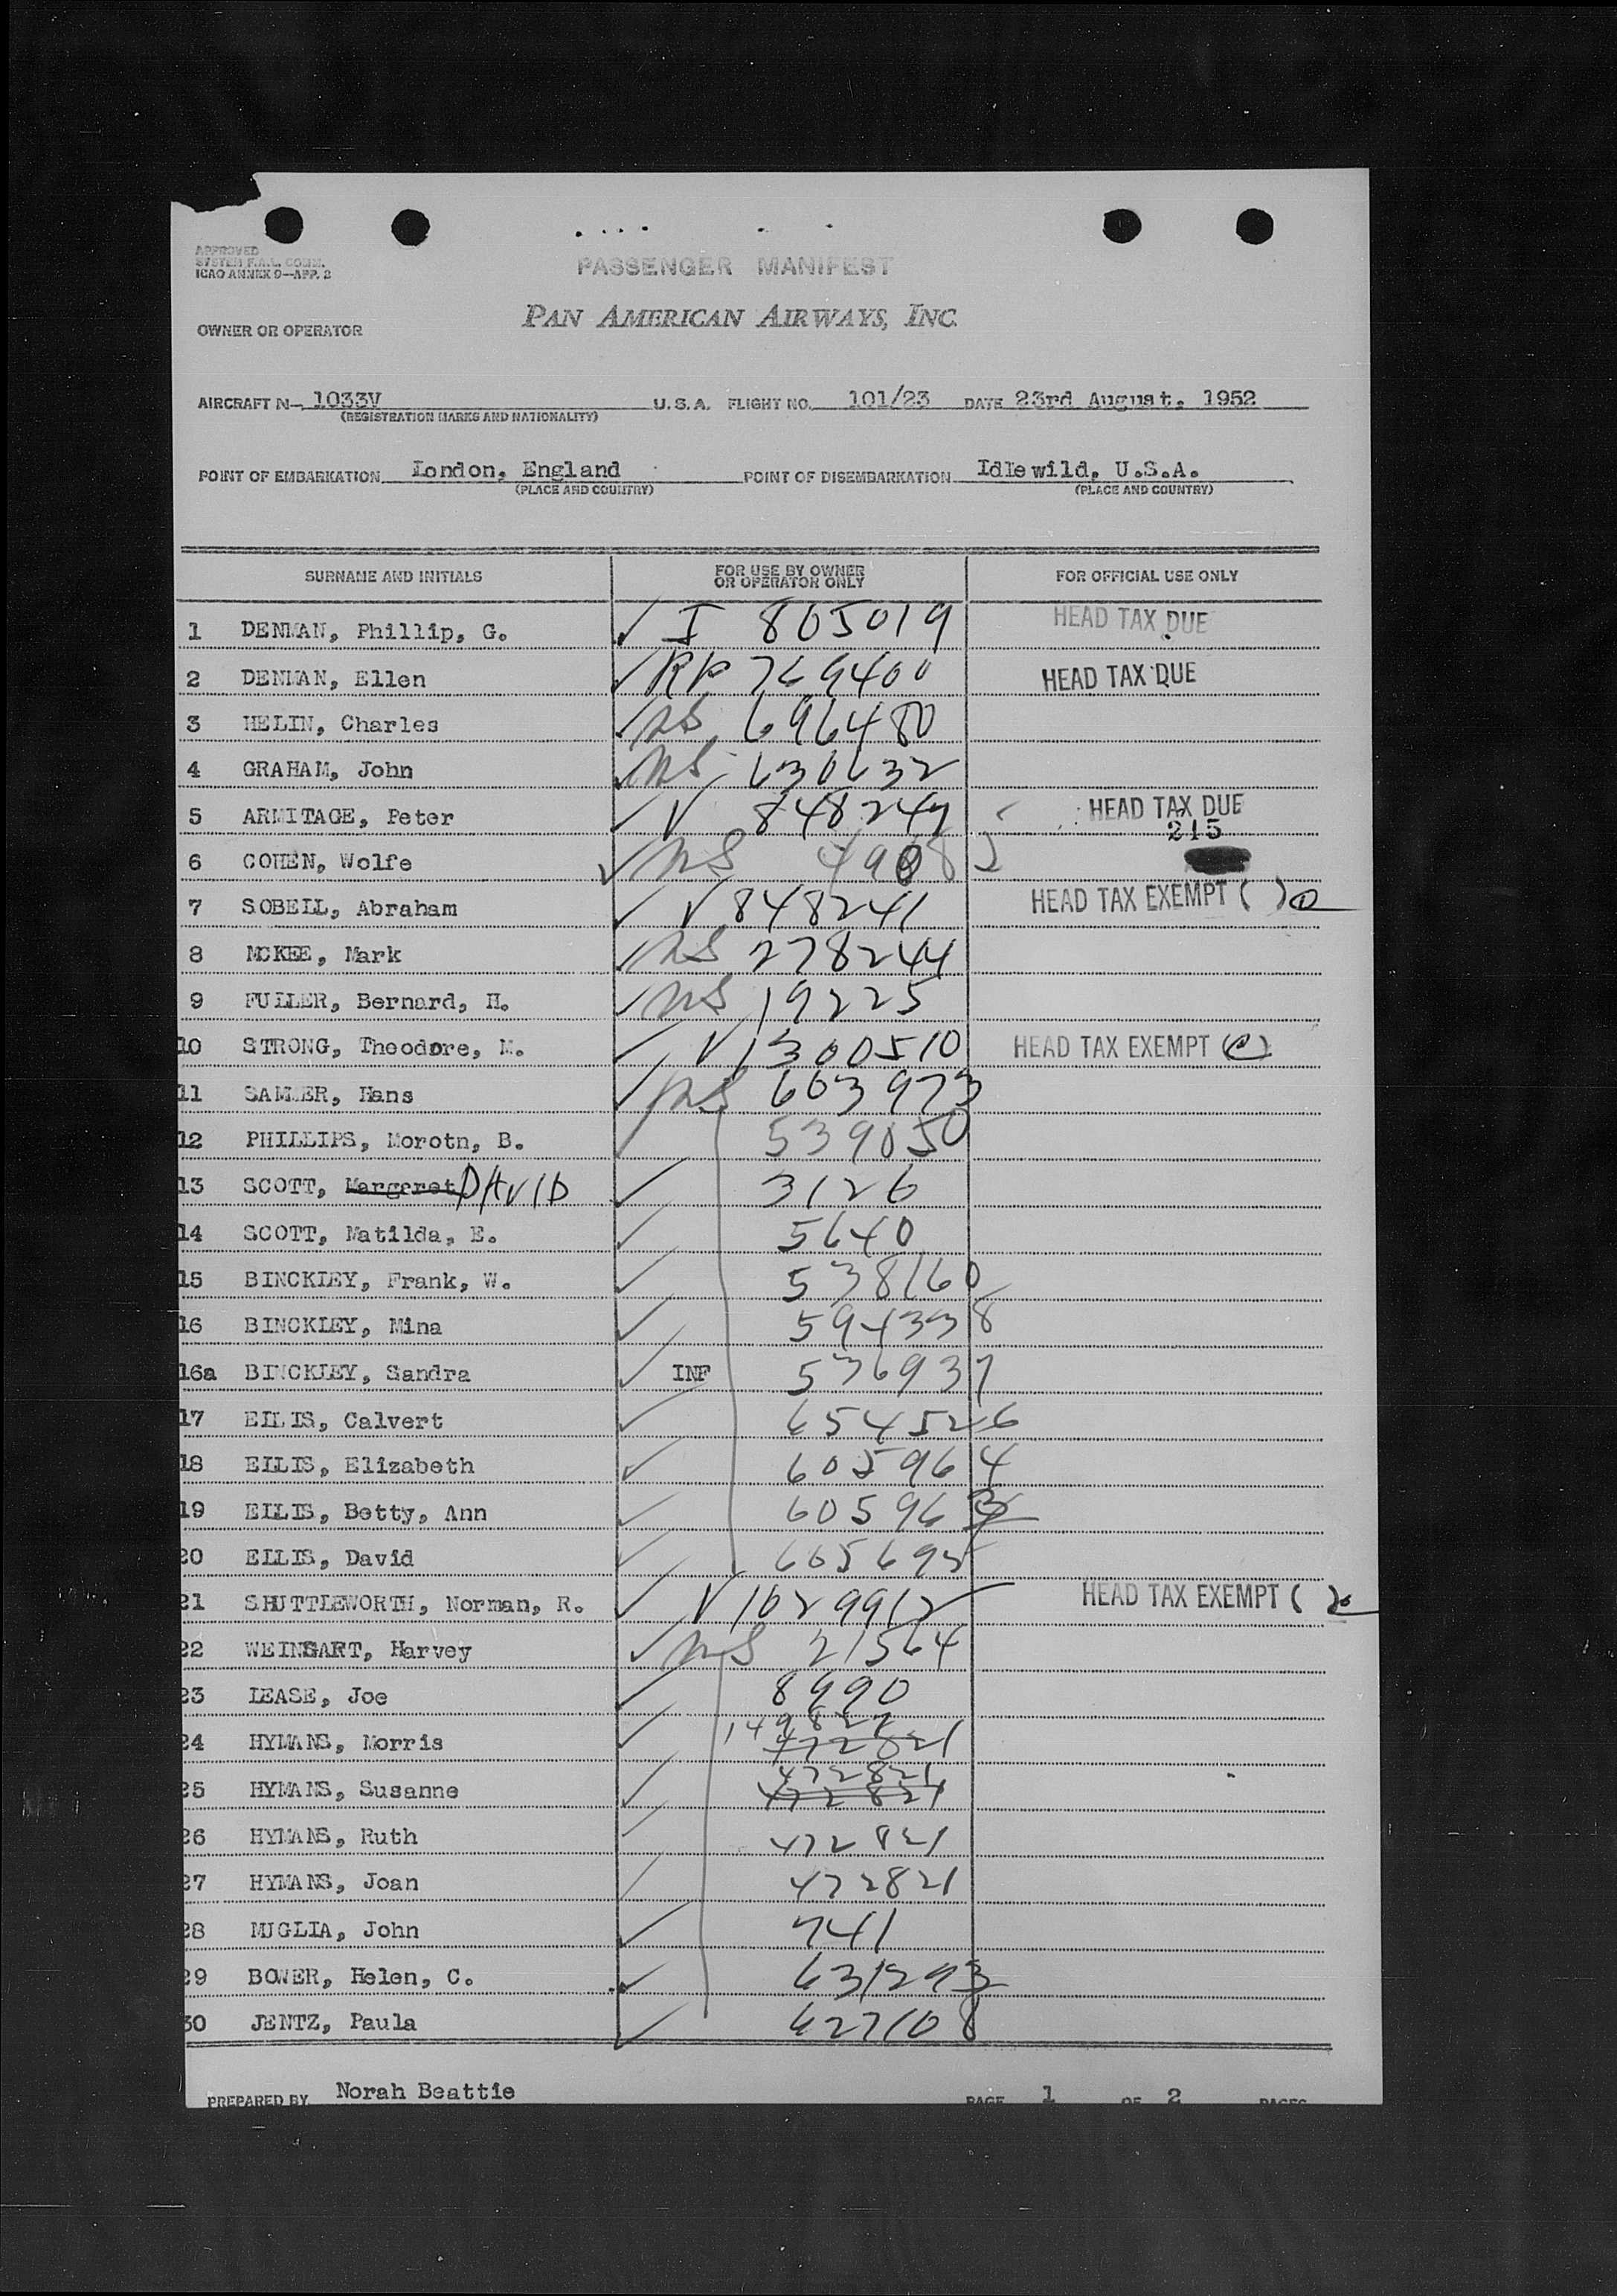 APPROVED
SYSTEM F.A.L. COMM.
ICAO ANNEX 9—APP. 2
PASSENGER MANIFEST
PAN AMERICAN AIRWAYS, INC.
OWNER OR OPERATOR
AIRCRAFT N— 1033V U.S.A. FLIGHT NO. 101/23 DATE 23rd August, 1952
(REGISTRATION MARKS AND NATIONALITY)
POINT OF EMBARKATION London, England POINT OF DISEMBARKATION Idlewild, U.S.A.
(PLACE AND COUNTRY) (PLACE AND COUNTRY)
SURNAME AND INITIALS FOR USE BY OWNER OR OPERATOR ONLY FOR OFFICIAL USE ONLY
1 DENMAN, Phillip, G. I 805019 HEAD TAX DUE
2 DENMAN, Ellen 769400 HEAD TAX DUE
3 HELIN, Charles 696480
4 GRAHAM, John 630632
5 ARMITAGE, Peter V 848249 HEAD TAX DUE
215
6 COHEN, Wolfe NS
7 SOBELL, Abraham V 848241 HEAD TAX EXEMPT ( )
8 MCKEE, Mark NS 278244
9 FULLER, Bernard, H. NS 19225
10 STRONG, Theodore, M. V 1300510 HEAD TAX EXEMPT (C)
11 SAMMER, Hans NS 603973
12 PHILLIPS, Morotn, B. 539050
13 SCOTT, Margeret DAVID 3126
14 SCOTT, Matilda, E. 5640
15 BINCKLEY, Frank, W. 538160
16 BINCKLEY, Mina 594338
16a BINCKLEY, Sandra INF 536937
17 ELLIS, Calvert 654526
18 ELLIS, Elizabeth 605964
19 ELLIS, Betty, Ann 605963
20 ELLIS, David 605695
21 SHUTTLEWORTH, Norman, R. V 1029912 HEAD TAX EXEMPT ( )
22 WEINGART, Harvey NS 21564
23 LEASE, Joe 8990
24 HYMANS, Morris 472821
25 HYMANS, Susanne 472821
472821
26 HYMANS, Ruth 472821
27 HYMANS, Joan 472821
28 MUGLIA, John 741
29 BOWER, Helen, C. 631293
30 JENTZ, Paula 627108
PREPARED BY Norah Beattie PAGE 1 OF 2 PAGES